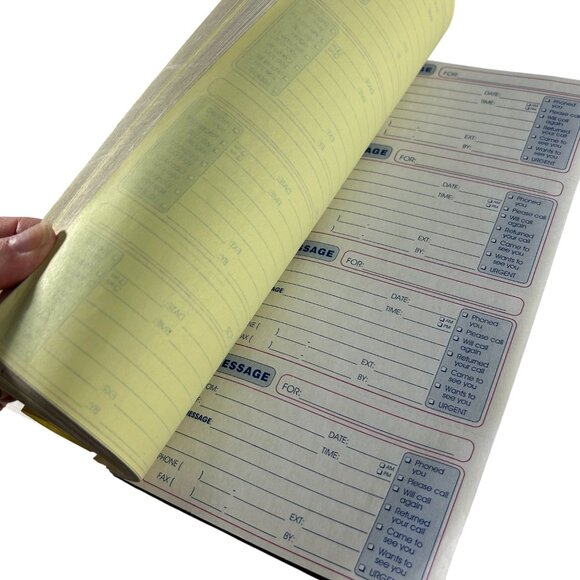 AGE FOR:
DATE:
TIME: AM
PM
EXT:
BY:
Phoned you
Please call
Will call again
Returned your call
Came to see you
Wants to see you
URGENT
AGE FOR:
DATE:
TIME: AM
PM
( )
( ) EXT:
BY:
Phoned you
Please call
Will call again
Returned your call
Came to see you
Wants to see you
URGENT
MESSAGE FOR:
MESSAGE: DATE:
TIME: AM
PM
NE ( )
FAX ( ) EXT:
BY:
Phoned you
Please call
Will call again
Returned your call
Came to see you
Wants to see you
URGENT
MESSAGE FOR:
OM:
MESSAGE: DATE:
TIME: AM
PM
PHONE ( )
FAX ( ) EXT:
BY:
Phoned you
Please call
Will call again
Returned your call
Came to see you
Wants to see you
URGENT